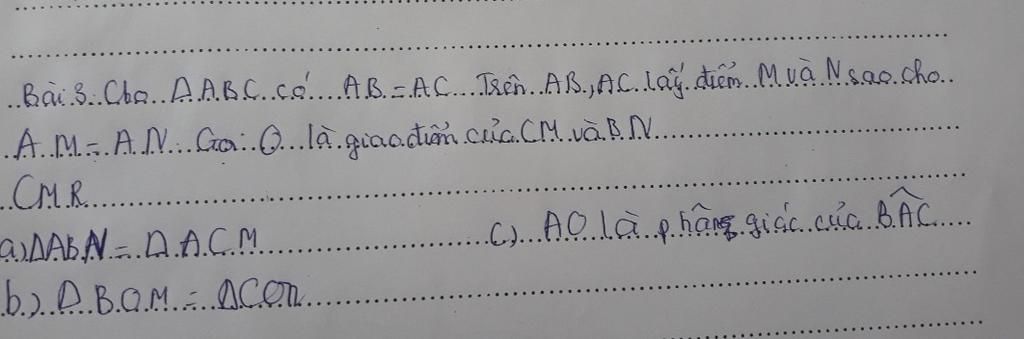 Bài 3. Cho ΔABC có AB = AC. Trên AB, AC lấy điểm M và N sao cho
AM = AN. Gọi O là giao điểm của CM và BN
CMR
a) ΔABN = ΔACM c) AO là phâng giác của BÂC
b) ΔBOM = ΔCON